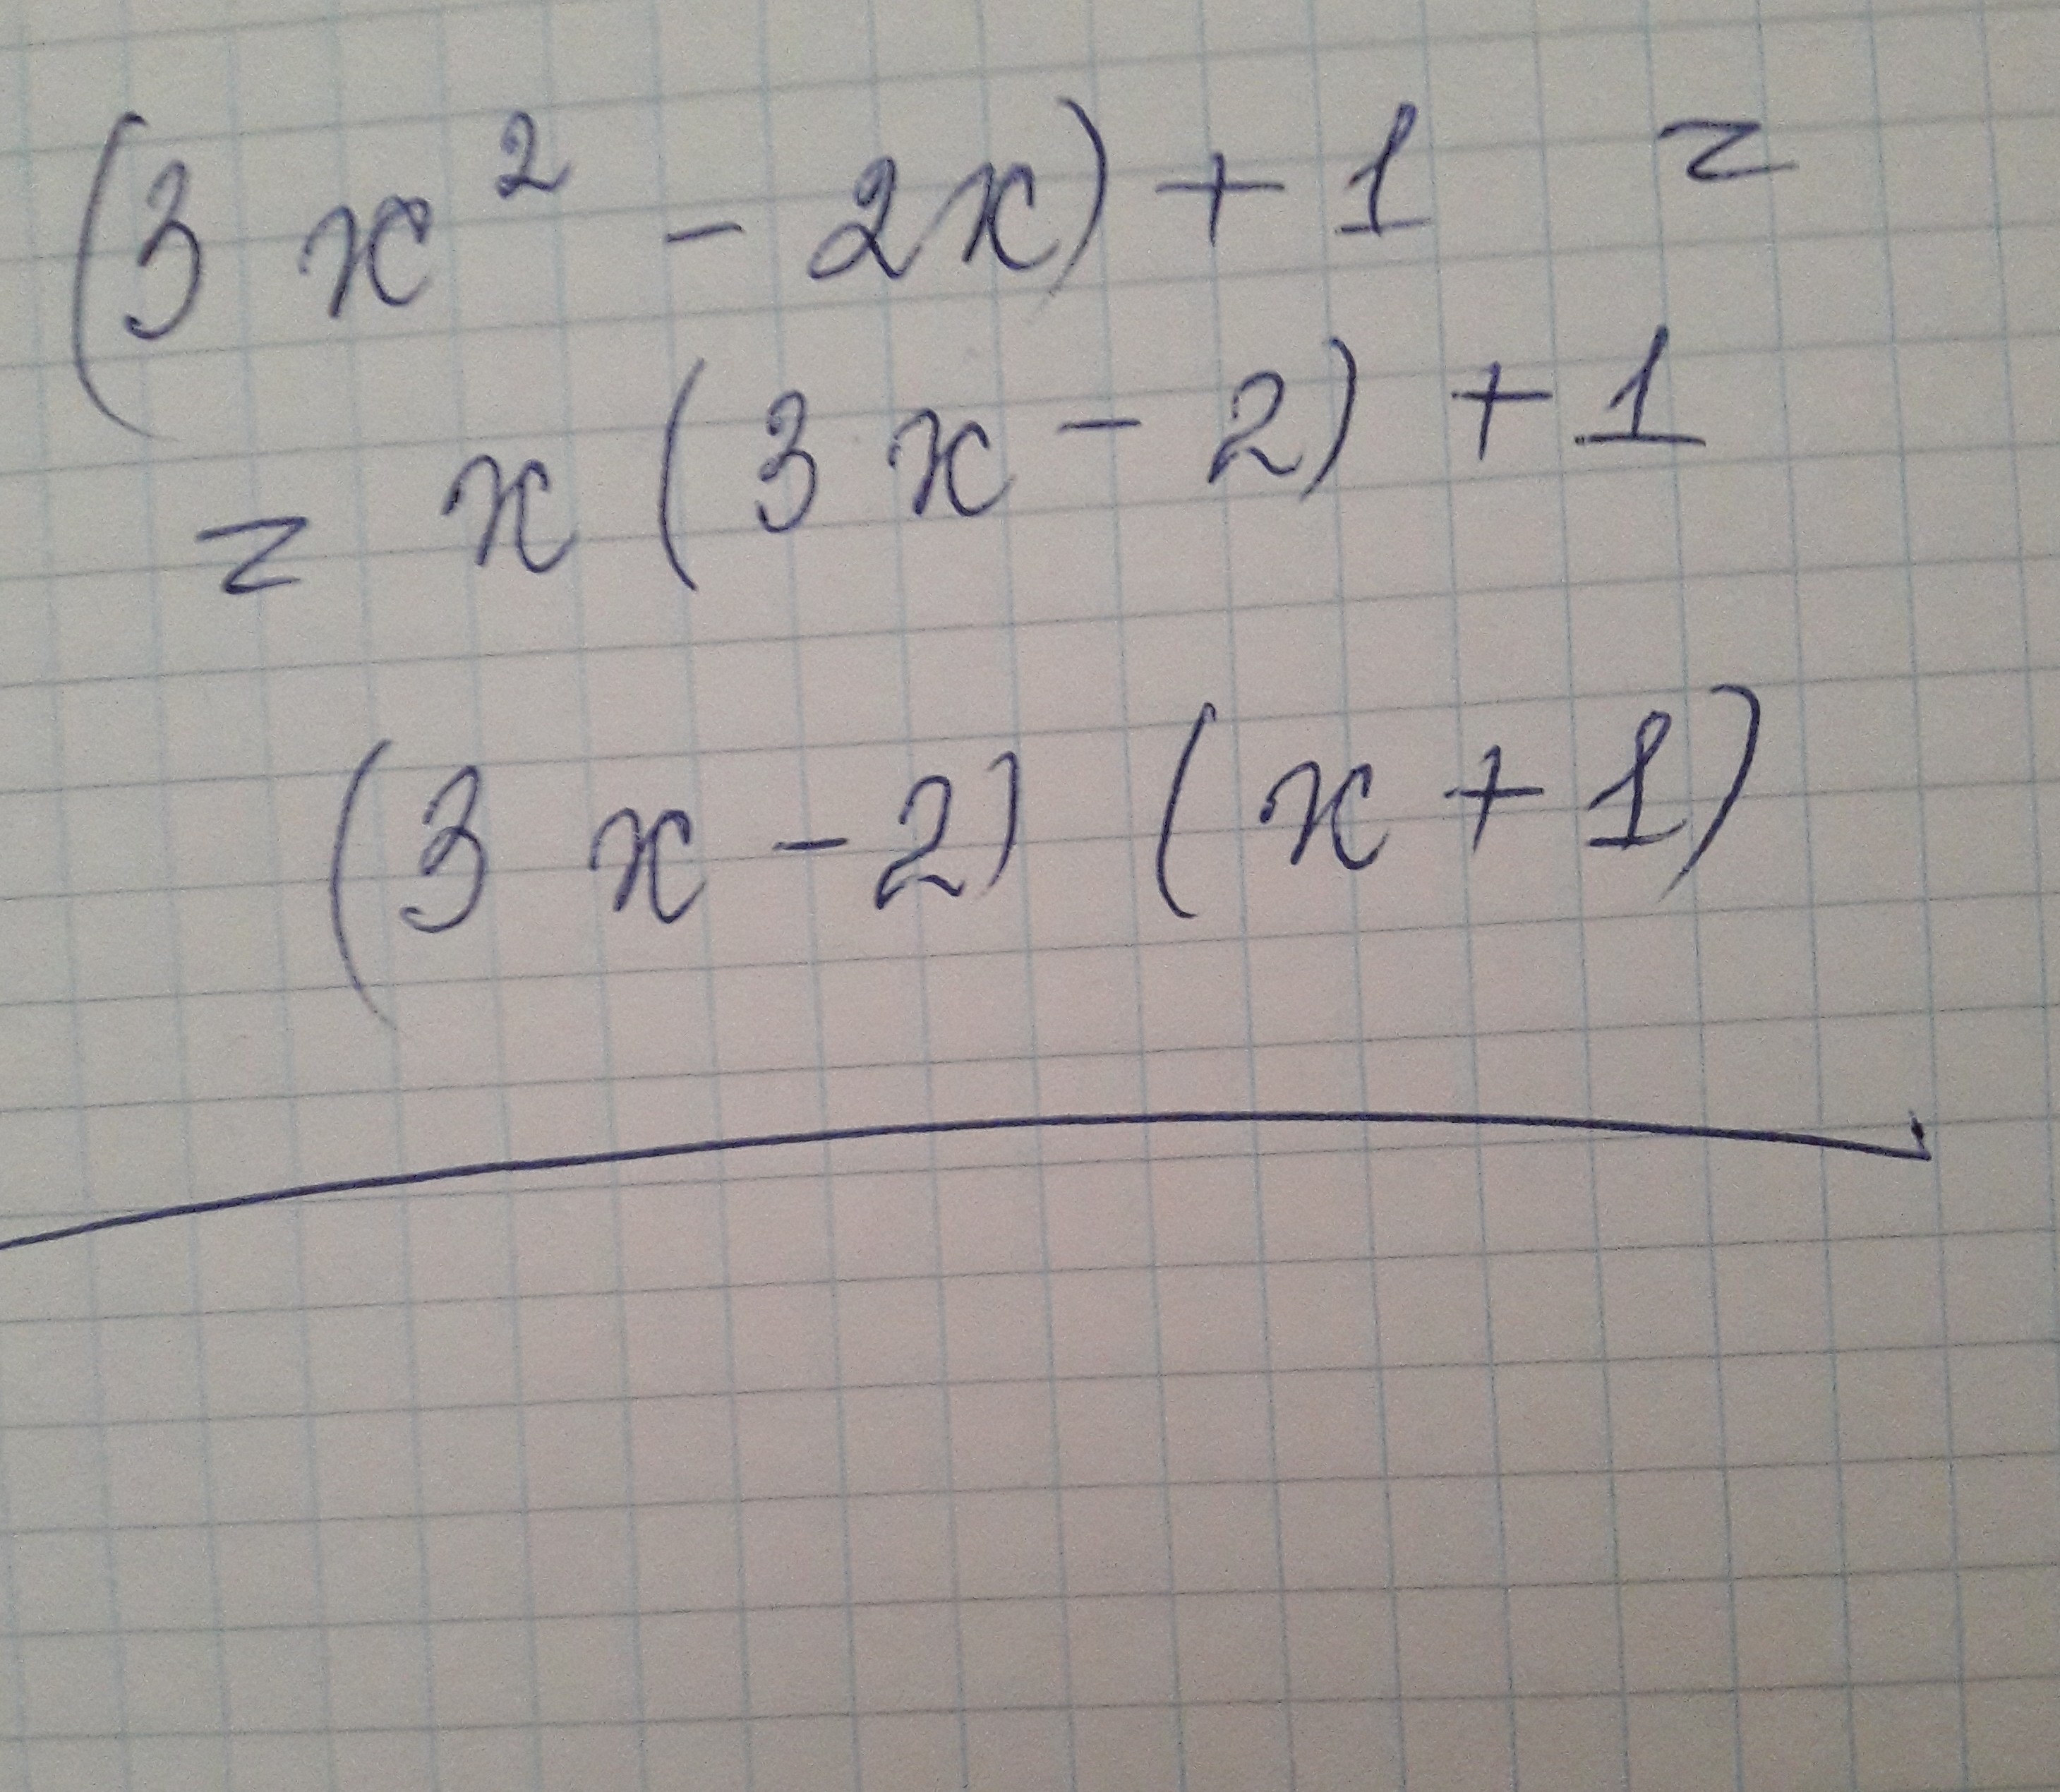 (3x² - 2x) + 1 =
= x (3x - 2) + 1
(3x - 2) (x + 1)